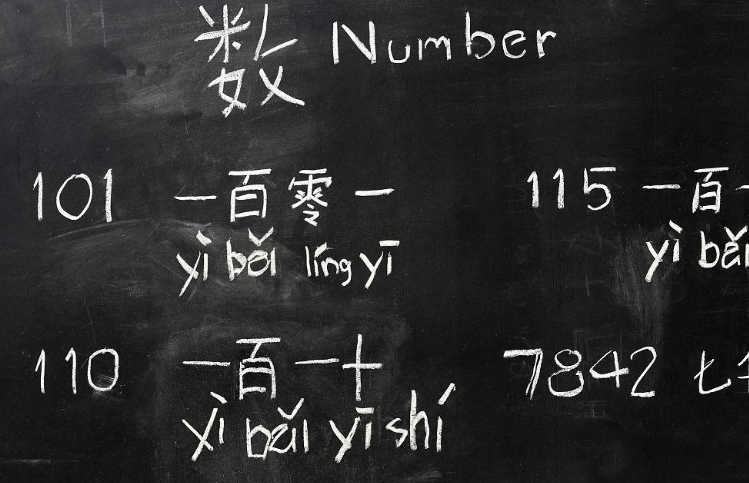 数 Number
101 一百零一
yì bǎi líng yī
115 一百
yì bǎi
110 一百一十
yì bǎi yī shí
7842 七